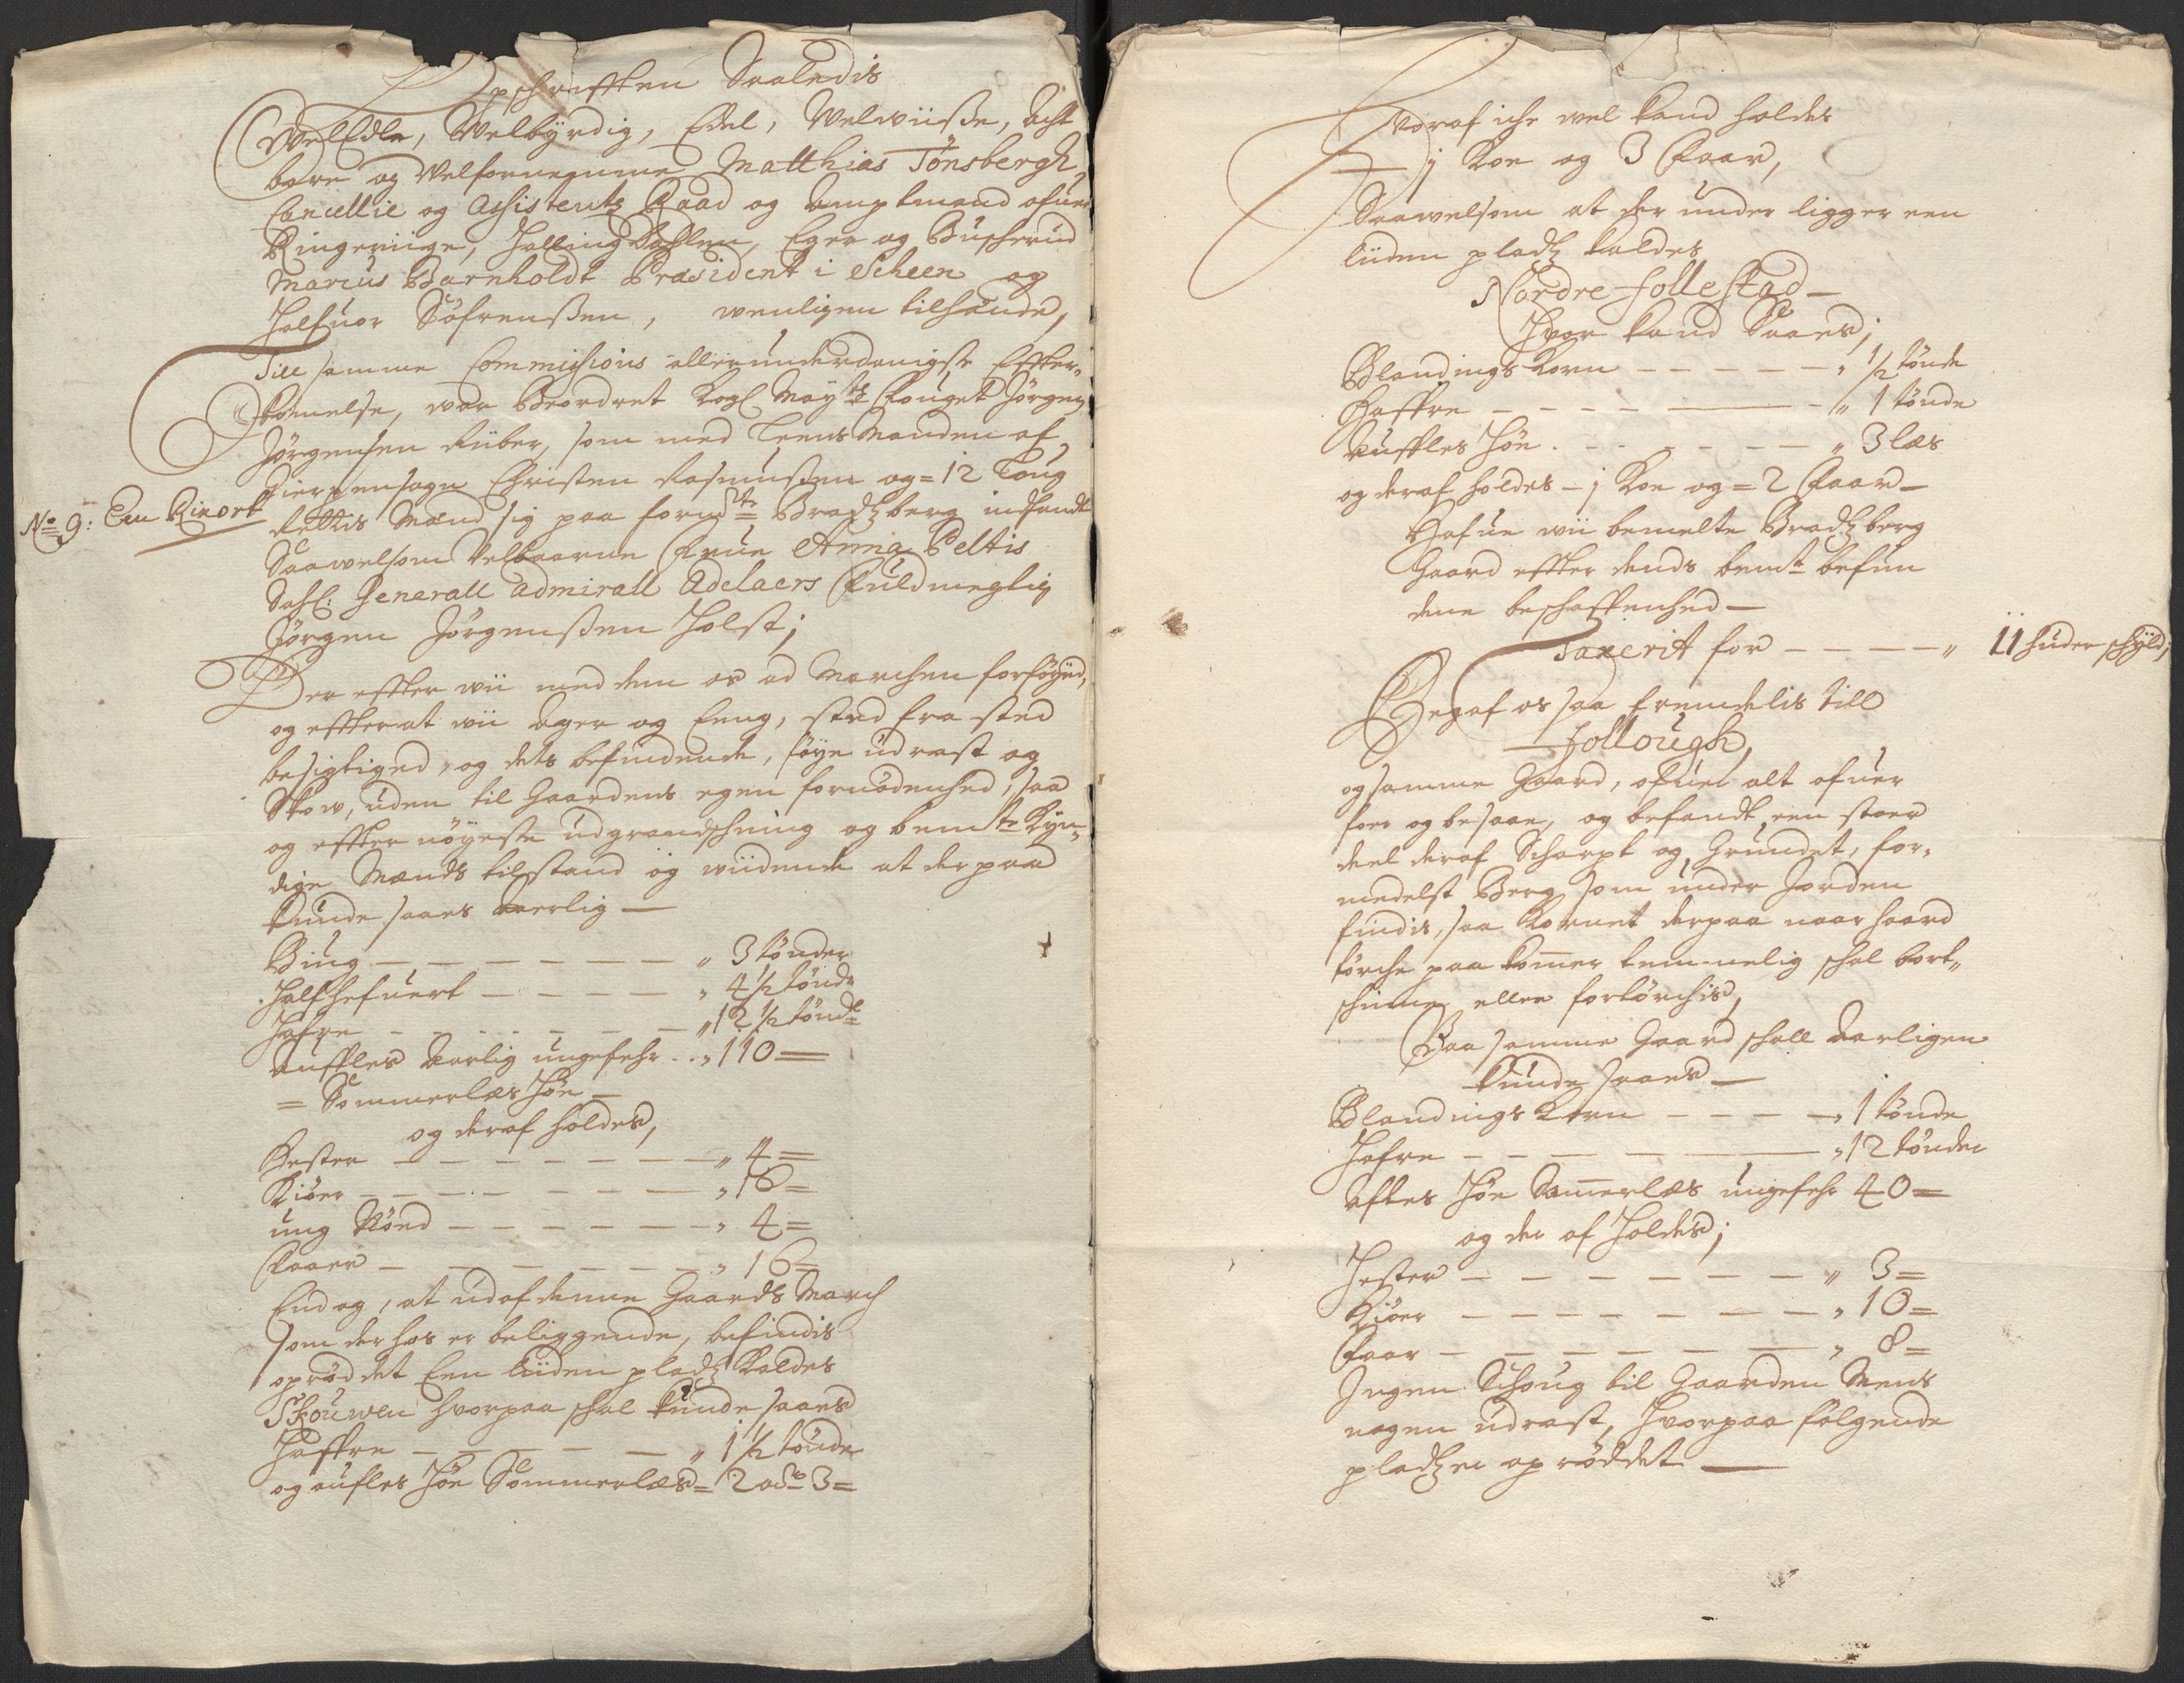 Opschrifften Saaledis
WelEdle, Welbÿrdig, Edel, Velviiße, Acht
bare og Velfornemme Matthias Tönsbergh,
Cancellie og Assistentz Raad og Amptmand ofuer
Ringeriige, Halling Dahlen, Eger og Buscherud
Marcus Barnholdt Præsident i Scheen og
Halfuor Söfrenßen, wenligen tilhaande,
Till samme Commissions allerunderdanigste Effter-
kommelse, war Beordret Kogl Mayts Fouget Jörgen
Jörgensen Ruber, som med Leens Manden af
Gierpensogn Christen Rasmußen og = 12 Laug
No 9: Een Rixort
Rettis Mænd sig paa forndte Bradtzberg indfandt
Saawelsom Velbaarne Frue Anna Peltis
Sahl: Generall Admirall Adelaers Fuldmegtig
Jörgen Jörgenßen Holst;
Der effter wii med dem os ad Marchen forföyed,
og effter at wii Ager og Eeng, sted fra sted
besigtiged, og dets befindende, föye udrast og
Skow, uden til Gaardens egen fornödenhed, saa
og effter nöyeste udgrandschning og bemte Kÿn-
dige Mænds tilstand og wiidende at der paa
kunde saaes aarlig —
Biug — — — — — — — „ 3 tönder
Halfhefuert — — — — — „ 4 1/2 tönde
Hafre — — — — — — — „ 12 1/2 tönde
Auffles Aarlig ungefehr . . „ 110 =
= Sommerlæs Höe —
og deraf holdes,
Hester — — — — — — — „ 4 =
Kiöer — — — — — — — „ 16 =
ung Nöed — — — — — — „ 4 =
Faaer — — — — — — — „ 16 =
End og, at udaf denne Gaards March
som der hos er beliggende, befindis
oprÿddet Een liiden pladtz kaldes
Skouwen hvorpaa schal kunde saaes
Haffre — — — — — „ 1 1/2 tönde
og aufles Höe Sommerlæs = 2 ad 3 =
Hvoraf icke wel kand holdes
— j Koe og 3 Faar,
Saawelsom at der under ligger een
liiden pladtz kaldes
Nordre Follestad —
Hvor kand Saaes;
Blandings Korn — — — — — „ 1/2 tönde
Haffre — — — — — — „ 1 tönde
Auffles Höe . — — — — — „ 3 læs
og deraf holdes — j Koe og = 2 Faar —
Hafue wii bemelte Bradtzberg
Gaard effter dends bemte befun
dene beschaffenhed —
Taxerit for — — — — „ 11 huder schÿld;
Begaf os saa fremdelis till
Follough,
og samme Gaard, ofuer alt ofuer
foer og besaae, og befandt een stoer
deel deraf Scharpt og Grundet, for-
medelst Berg som under Jorden
findis, saa Kornet derpaa naar haard
törche paa kommer temmelig schal bort-
schinne eller fortörchis,
Paa samme Gaard schall Aarligen
kunde saaes —
Blandings Korn — — — — „ 1 tönde
Hafre — — — — — — „ 12 tönder
Afles Höe Sommerlæs ungefehr 40 =
og der af Holdes;
Hester — — — — — — — „ 3 =
Kiöer — — — — — — — „ 10 =
Faar — — — — — — — „ 8 =
Ingen Schoug til Gaarden Mens
nogen udrast, Hvorpaa fölgende
pladtzer op röddet —